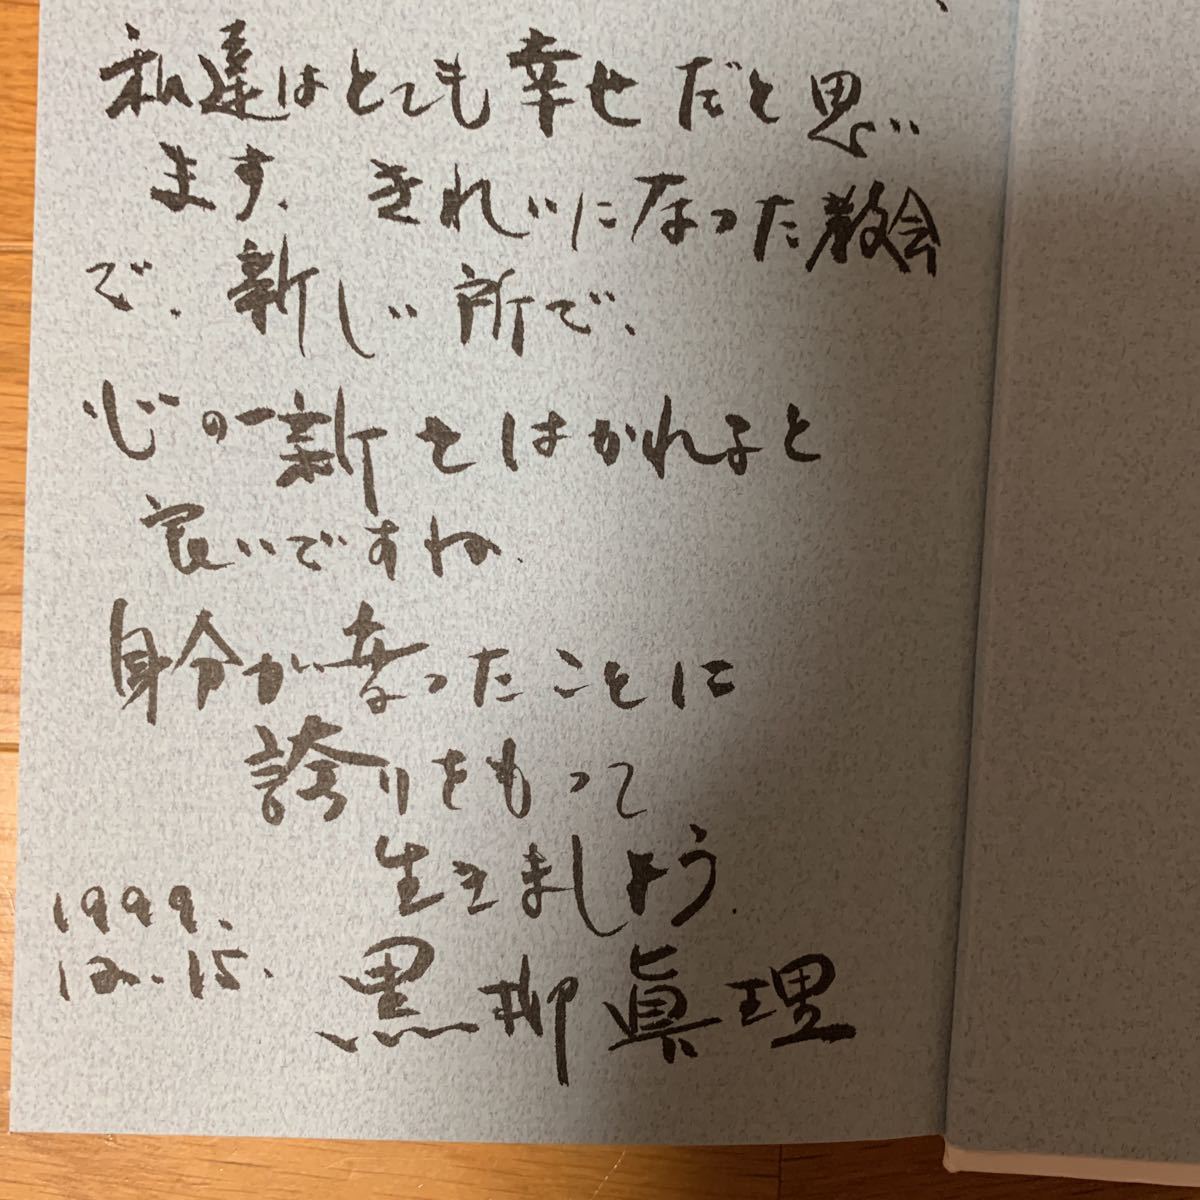 私達はとても幸せだと思い
ます. きれいになった教会
で. 新しい所で、
心の一新をはかれると
良いですね.
身分が変ったことに
誇りをもって
生きましょう.
1999.
12.15.
黒柳眞理